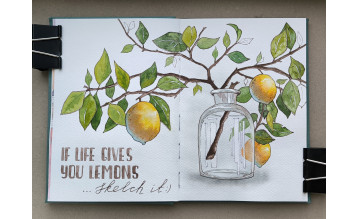 IF LIFE GIVES
YOU LEMONS
...sketch it:)